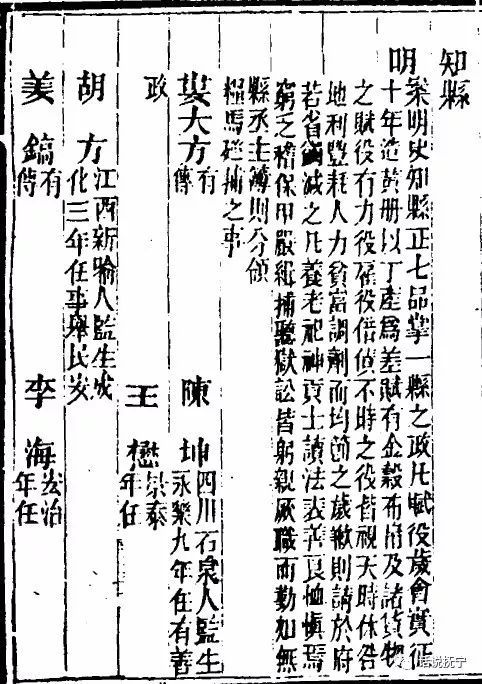 知縣
明
案明史知縣正七品掌一縣之政凡賦役歲會實征
十年造黃册以丁產爲差賦有金穀布帛及諸貨物
之賦役有力役雇役借倩不時之役皆視天時休咎
地利豐耗人力貧富調劑而均節之歲歉則請於府
若省蠲減之凡養老祀神貢士讀法表善良恤慎焉
窮乏稽保甲嚴緝捕聽獄訟皆躬親厥職而勤如無
縣丞主簿則分領
糧馬巡捕之事
婁大方 有傳
陳坤 四川石泉人監生永樂九年任有善
政
王懋 景泰年任
胡方 江西新喻人監生成化三年任事舉民安
姜鎬 有傳
李海 宏治年任
话说抚宁